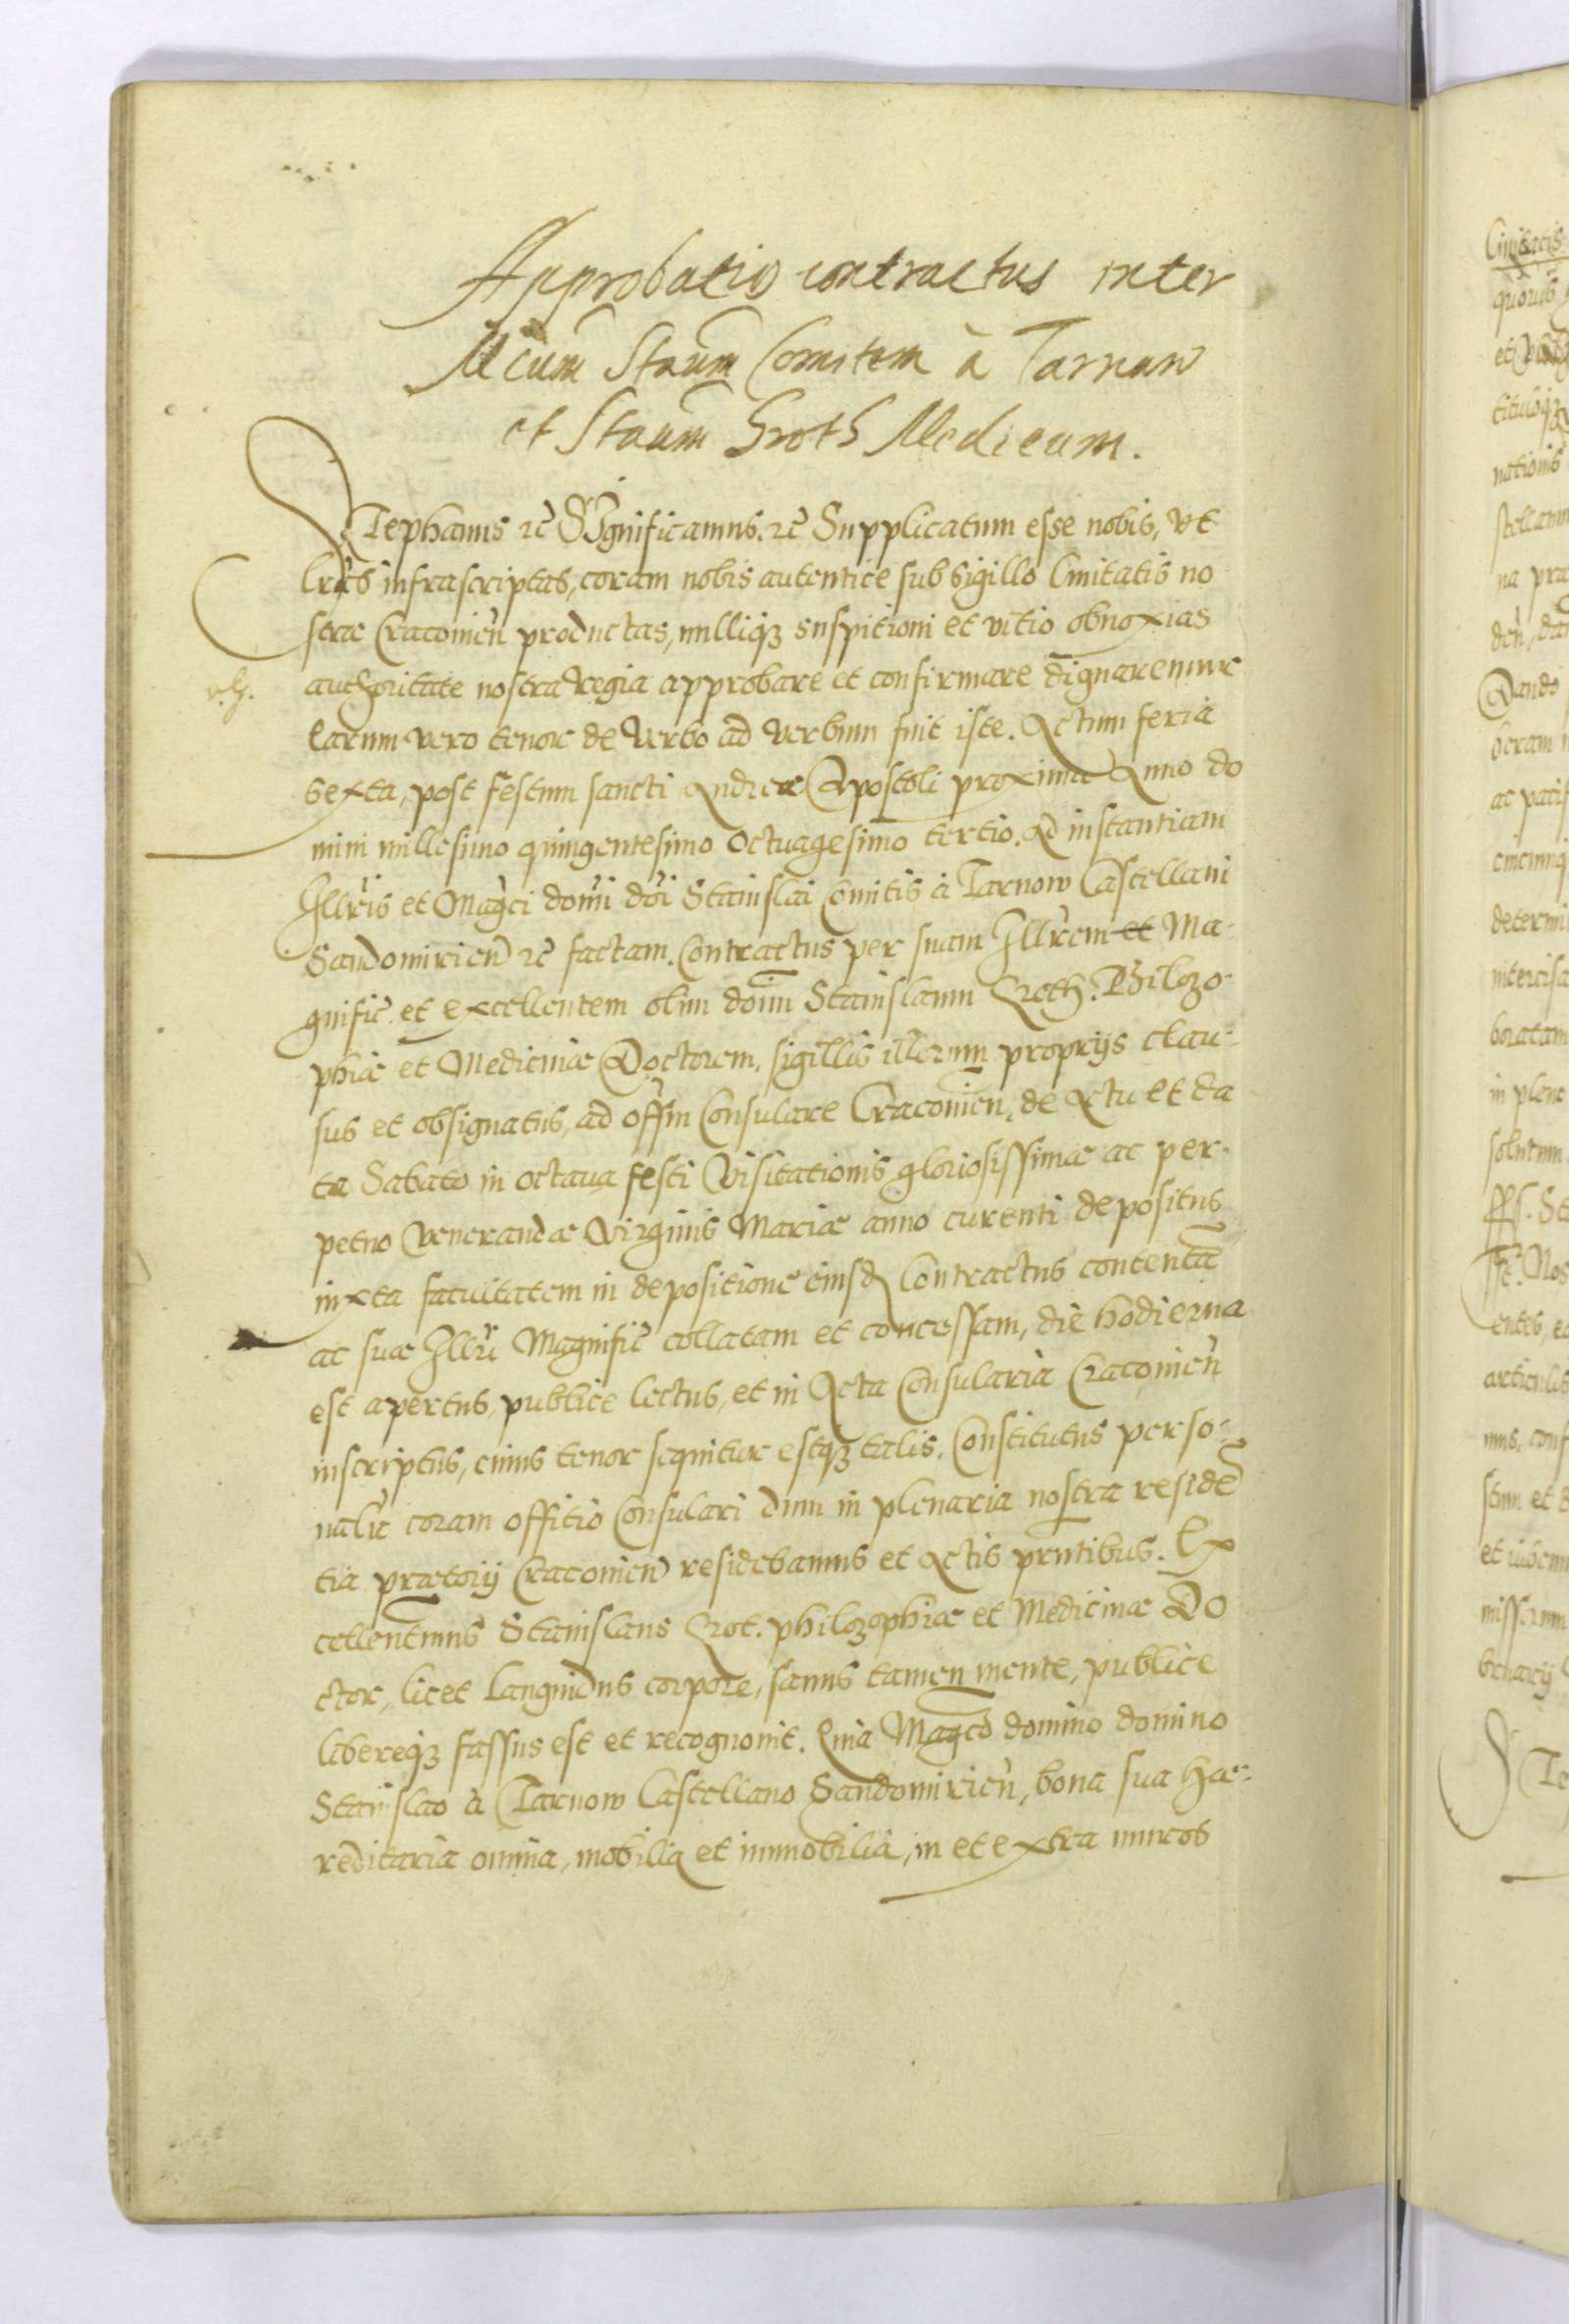 Approbatio contractus inter
Mcum Staum Comitem à Tarnow
et Staum Groth Medicum.
Stephanus rc Significamus. rc Supplicatum esse nobis, vt
lras infrascriptas, coram nobis autentice sub sigillo Ciuitatis no
strae Cracouien productas, nulliq suspitioni et vitio obnoxias
authoritate nostra Regia approbare et confirmare dignaremur
Earum vero tenor de verbo ad verbum fuit iste. Actum feria
sexta, post festum sancti Andreae Apostoli proxima Anno do
mini millesimo quingentesimo Octuagesimo tertio. Ad instantiam
Illris et Magci domi doi Stanislai Comitis à Tarnow Castellani
Sandomirien rc factam. Contractus per suam Illrem et Ma-
gnific et excellentem olim domi Stanislaum Groth. Philozo-
phiae et Medicinae Doctorem, sigillis illorum proprijs clau-
sus et obsignatus, ad offm Consulare Cracouien, de Actu et da
ta Sabato in octaua festi Visitationis gloriosissimae ac per-
petuo Venerandae Virginis Mariae anno curenti depositus
iuxta facultatem in depositione eiusd Contractus contenta
ac suae Illri Magnific collatam et concessam, die hodierna
est apertus, publice lectus, et in Acta Consularia Cracouien
inscriptus, cuius tenor sequitur estq talis. Constitutus perso-
nalr coram offitio Consulari dum in plenaria nostra reside
tia praetorij Cracouien residebamus et Actis prntibus. Ex
cellentmus Stanislaus Grot. philozophiae et Medicinae Do
ctor, licet languidus corpore, sanus tamen mente, publice
libereq fassus est et recognouit. Quia Magco domino domino
Stanislao à Tarnow Castellano Sandomirien, bona sua hae-
reditaria omnia, mobilia et immobilia, in et extra muros